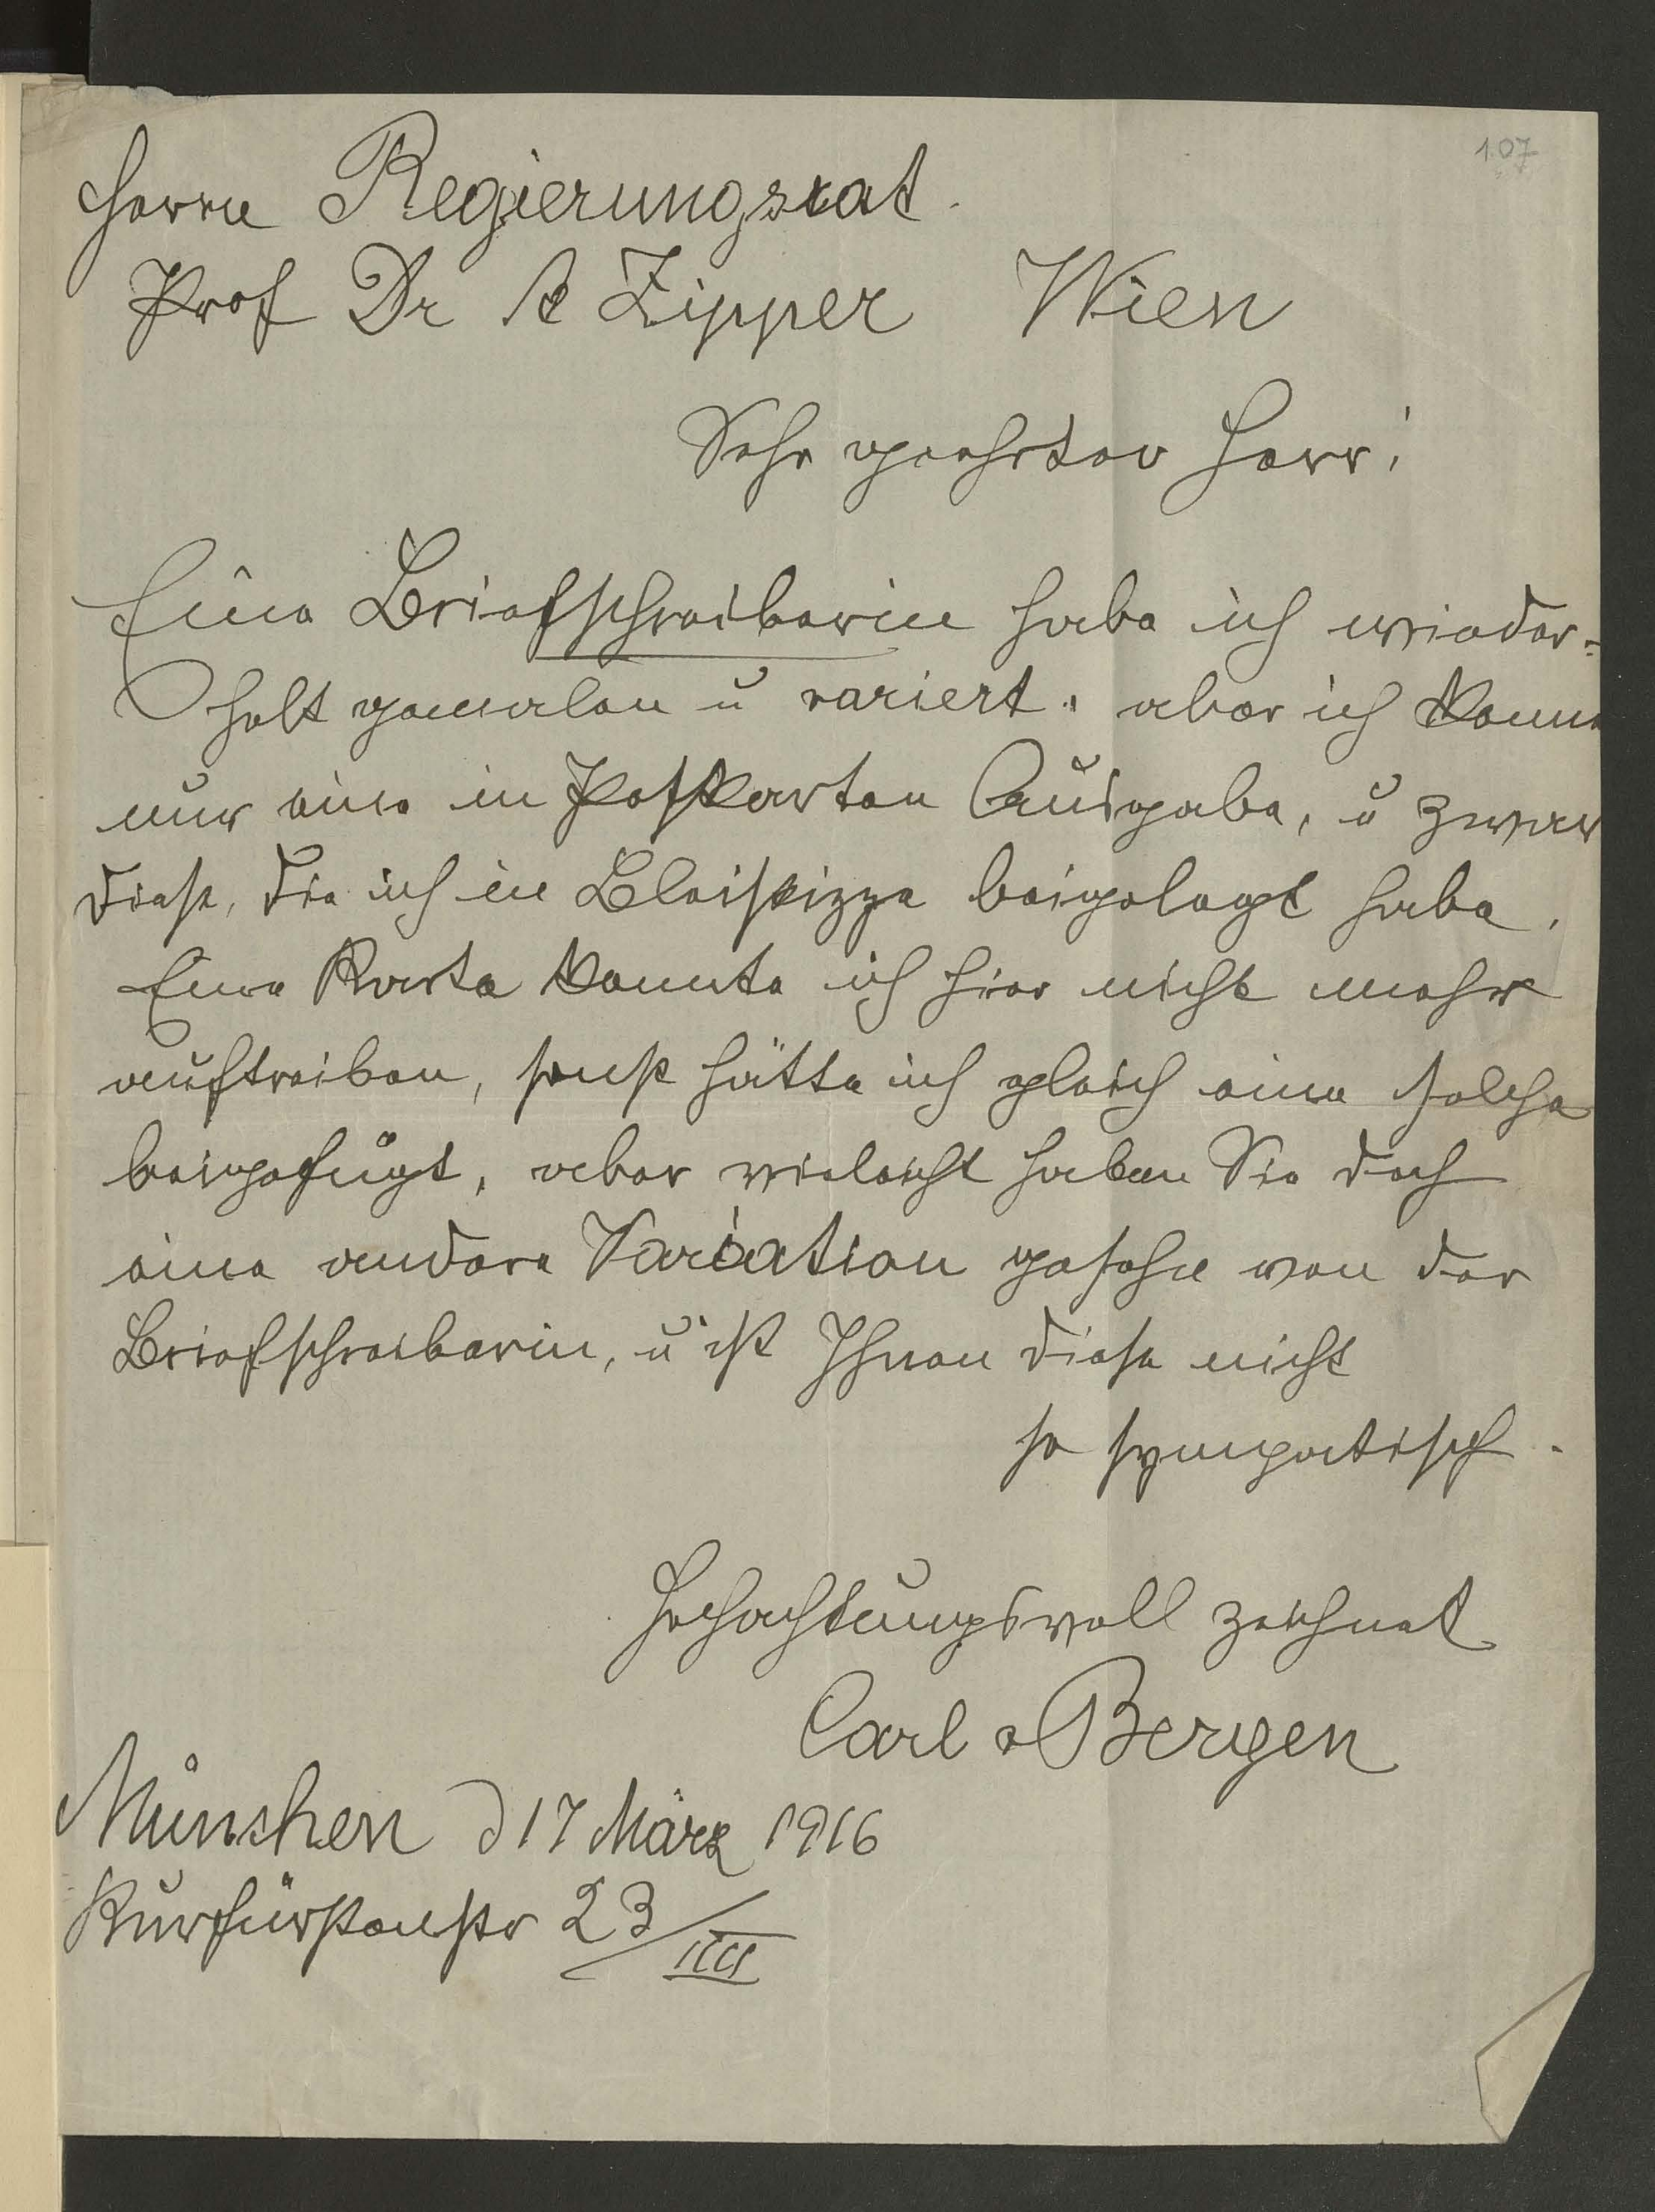 107
Herrn Regierungsrat.
Prof Dr A Zipper Wien
Sehr geehrter Herr!
Eine Briefschreiberin habe ich wieder-
holt gemalen u variert. aber ich kenne
nur eine in Postkarten Ausgabe, u zwar
diese, die ich in Bleiskizze beigelegt habe.
Eine Karte konnte ich hier nicht mehr
auftreiben, sonst hätte ich gleich eine solche
beigefügt, aber vieleicht haben Sie doch
eine andere Variation gesehn von der
Briefschreiberin, u ist Ihnen diese nicht
so sympatisch.
Hochachtungsvoll zeichnet
Carl v Bergen
München d 17 März 1916
Kurfürstenstr 23/III